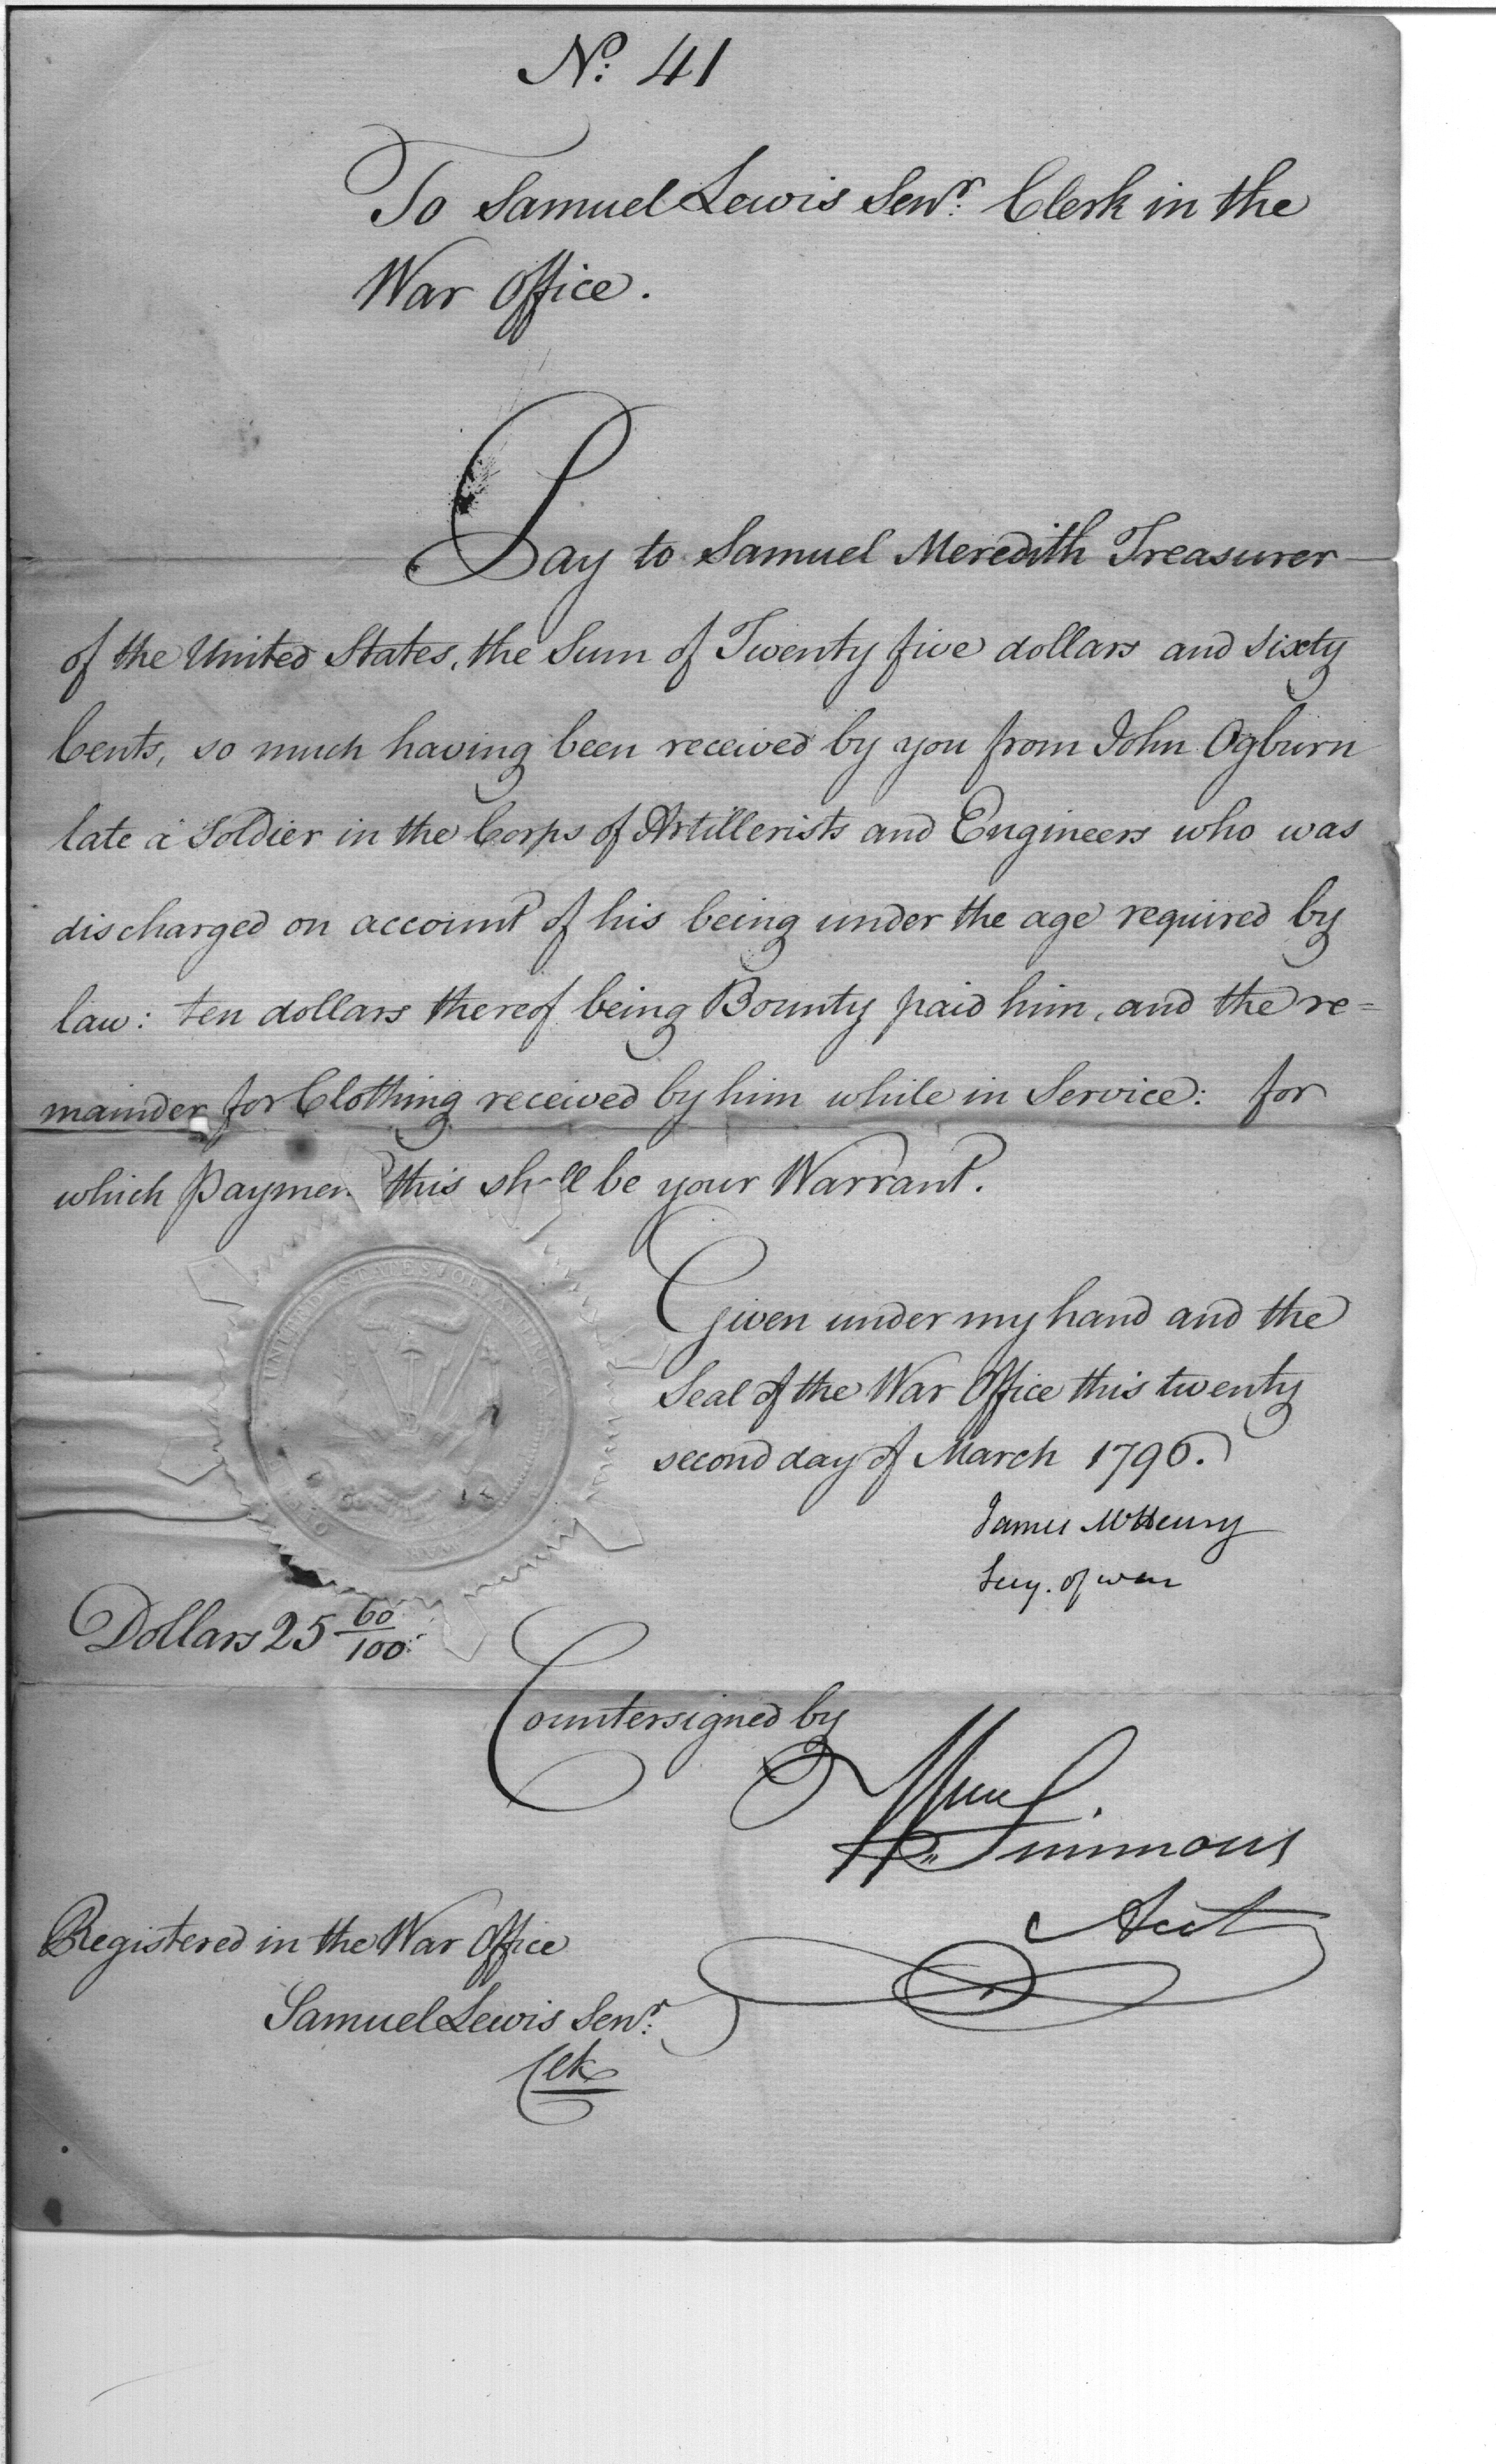 No: 41
To Samuel Lewis Senr: Clerk in the
War Office.
Pay to Samuel Meredith Treasurer
of the United States, the Sum of Twenty five dollars and sixty
Cents, so much having been received by you from John Ogburn
late a Soldier in the Corps of Artillerists and Engineers who was
discharged on account of his being under the age required by
law: ten dollars thereof being Bounty paid him, and the re=
mainder for Clothing received by him while in Service: for
which Paymen this sh ll be your Warrant.
UNITED STATES OF AMERICA
Given under my hand and the
Seal of the War Office this twenty
second day of March 1796.
James McHenry
Secy. of war
Dollars 25 60/100.
Countersigned by
Wm Simmons
Acct
Registered in the War Office
Samuel Lewis Senr:
Clk